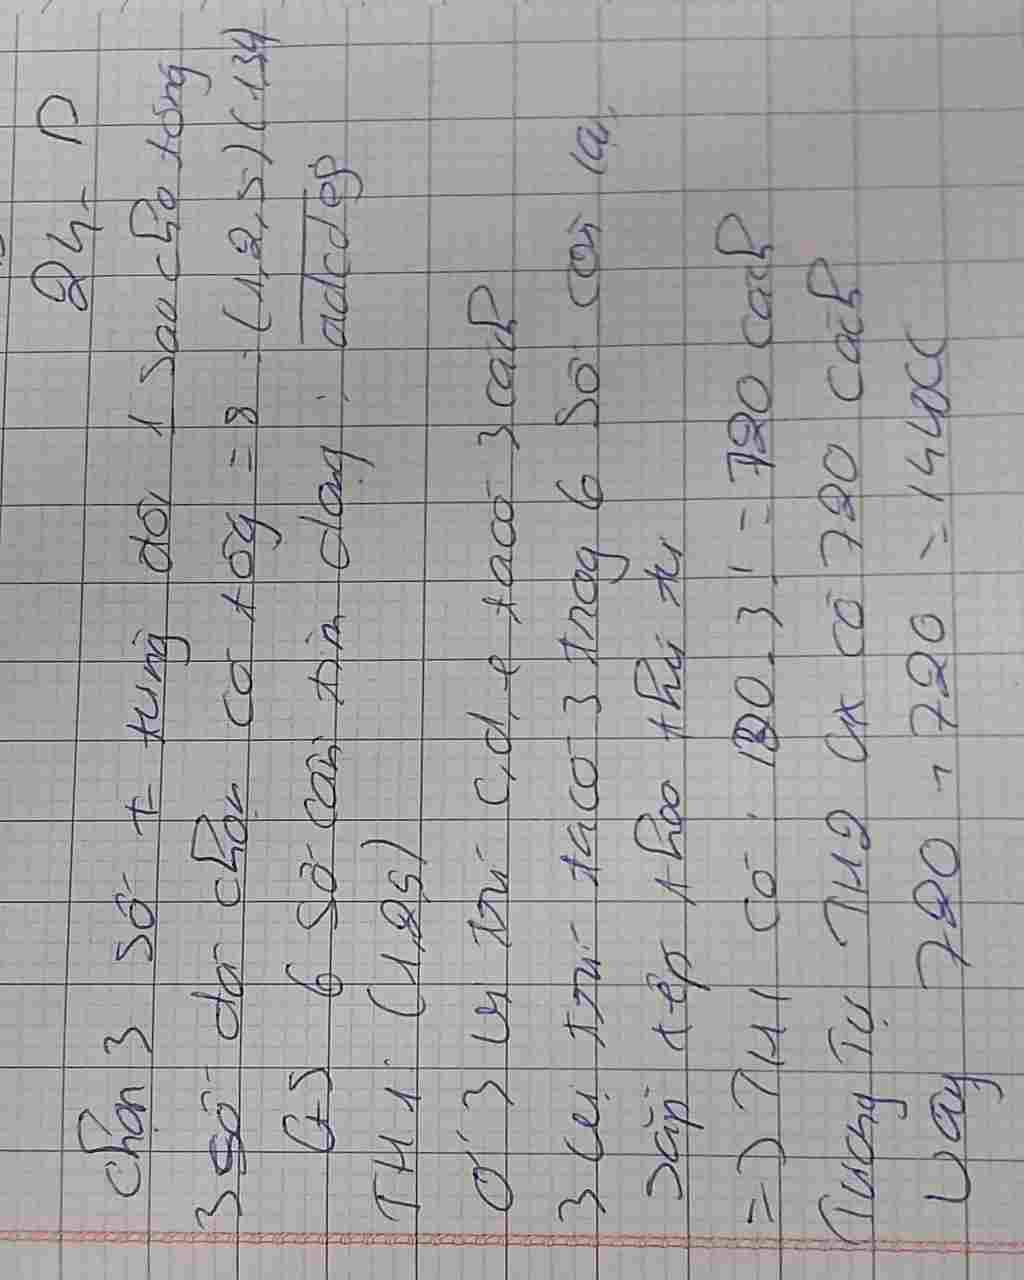 24. D
chọn 3 số từ trừng đôi 1 sao cho tổng
3 số đó chọn có tổg = 8 : (1,2,5) (134
Gs 6 số cần tìm dạng : abcdeg
TH1: (1,2,5)
Ở 3 vị trí c,d,e ta có 3! cách
3 vị trí ta có 3 trog 6 số còn lại
sắp xếp theo thứ tự
=> TH1 có : 120.3! = 720 cách
Tương Tự TH2 cx có 720 cách
Vậy 720 + 720 = 1440cc